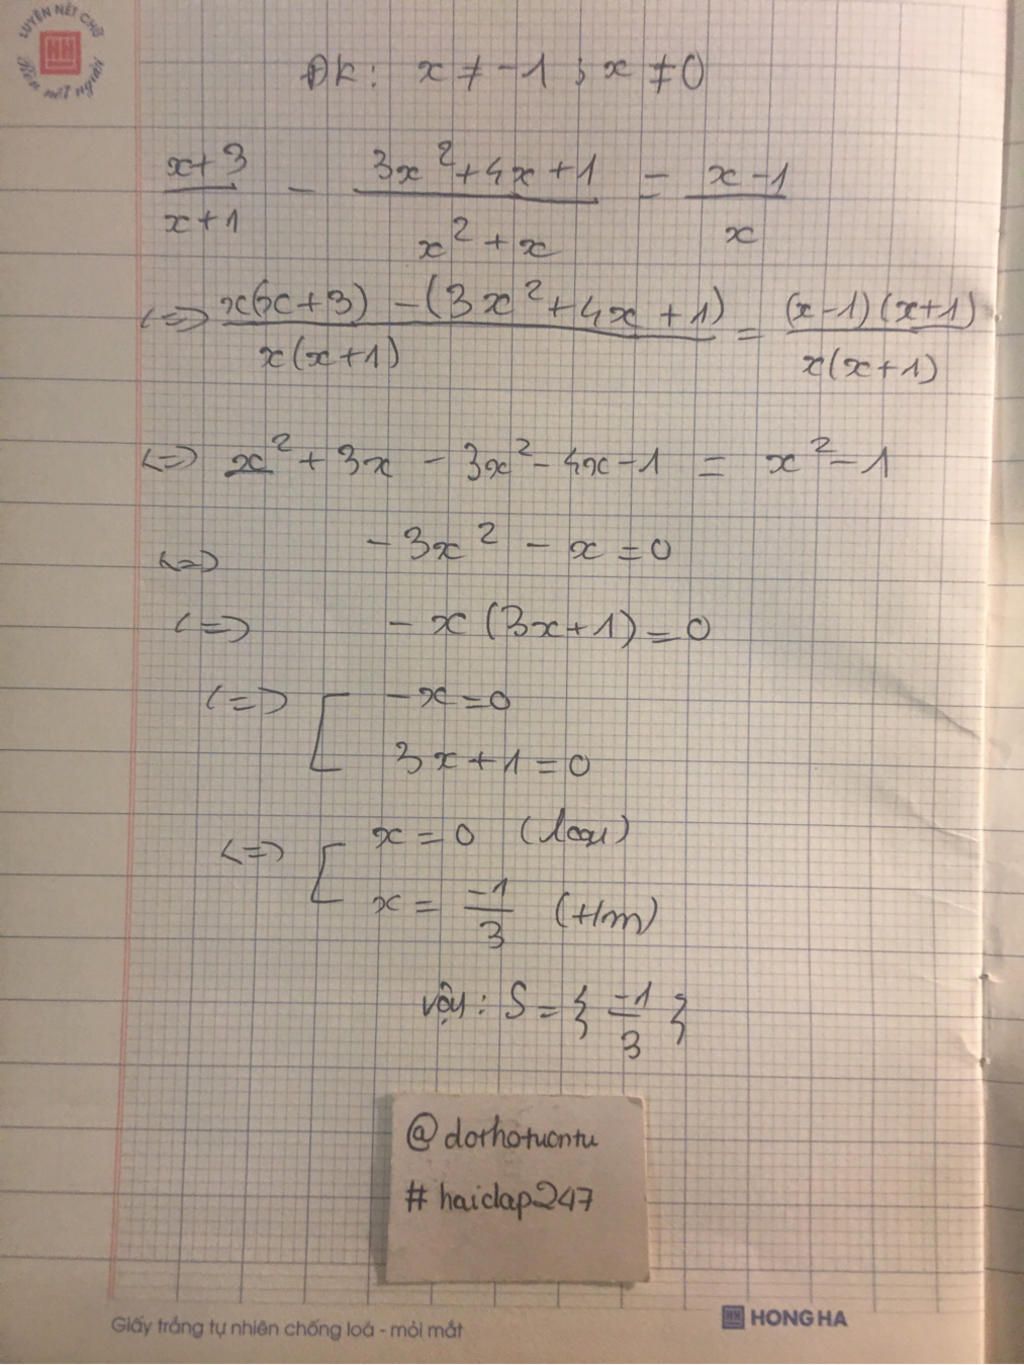 LUYỆN NÉT CHỮ
HH
Rèn nết người
ĐK: x ≠ -1 ; x ≠ 0
\frac{x+3}{x+1} - \frac{3x²+4x+1}{x²+x} = \frac{x-1}{x}
<=> \frac{x(x+3) -(3x²+4x+1)}{x(x+1)} = \frac{(x-1)(x+1)}{x(x+1)}
<=> x²+3x - 3x²-4x-1 = x²-1
<=> -3x² - x = 0
<=> -x(3x+1)=0
<=> [ -x=0
3x+1=0
<=> [ x=0 (loại)
x = \frac{-1}{3} (t/m)
Vậy: S = { \frac{-1}{3} }
@dothotuantu
#haidap247
Giấy trắng tự nhiên chống loá - mỏi mắt
HH HONG HA